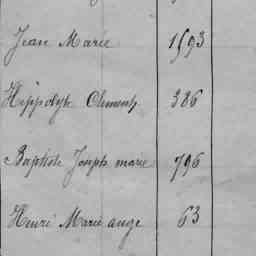 Jean Marie 1593
Hippolyte Clement 386
Baptiste Joseph marie 796
Henri Marie ange 63